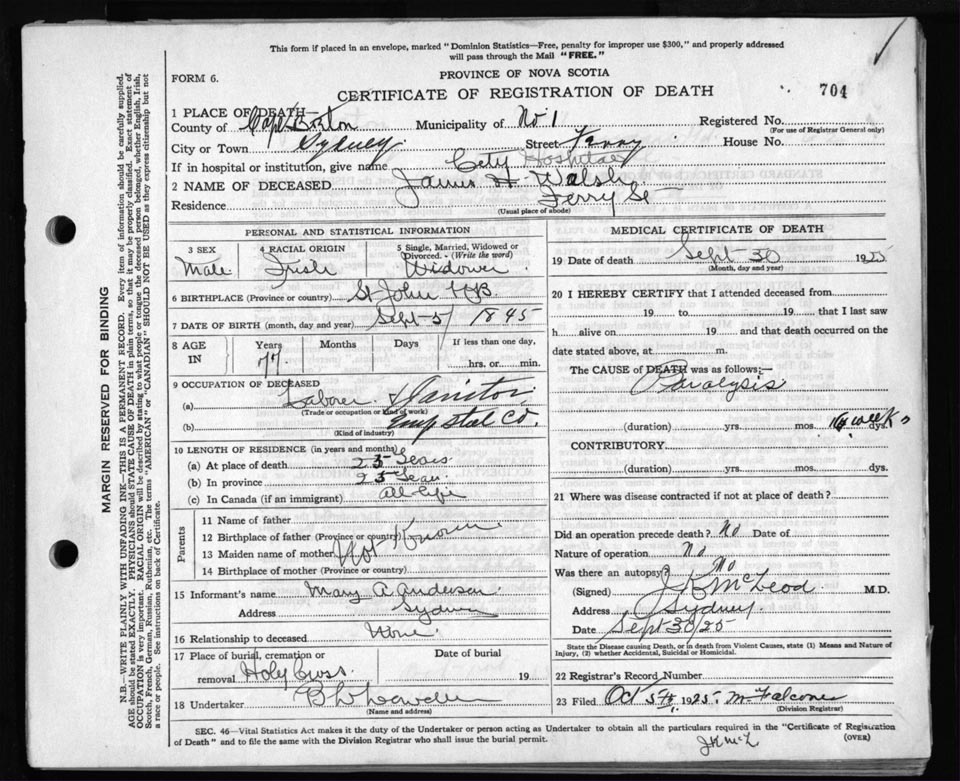 This form if placed in an envelope, marked "Dominion Statistics—Free, penalty for improper use $300," and properly addressed
will pass through the Mail "FREE."
FORM 6.
PROVINCE OF NOVA SCOTIA
CERTIFICATE OF REGISTRATION OF DEATH
704
1 PLACE OF DEATH—
County of Cape Breton Municipality of No 1 Registered No.
(For use of Registrar General only)
City or Town Sydney Street Ferry House No.
If in hospital or institution, give name City Hospital
2 NAME OF DECEASED James H Walsh
Residence Ferry St
(Usual place of abode)
PERSONAL AND STATISTICAL INFORMATION
3 SEX 4 RACIAL ORIGIN 5 Single, Married, Widowed or
Divorced.- (Write the word)
Male Irish Widower
6 BIRTHPLACE (Province or country) St John NB
7 DATE OF BIRTH (month, day and year) Sept 5 1845
8 AGE
IN
Years Months Days If less than one day,
77 hrs. or min.
9 OCCUPATION OF DECEASED
(a) Laborer Janitor
(Trade or occupation or kind of work)
(b) Emp Steel Co.
(Kind of industry)
10 LENGTH OF RESIDENCE (in years and months)
(a) At place of death 25 Years
(b) In province 25 Years
(c) In Canada (if an immigrant) All life
Parents
11 Name of father
12 Birthplace of father (Province or country)
13 Maiden name of mother Not Known
14 Birthplace of mother (Province or country)
15 Informant's name Mary A Anderson
Address Sydney
16 Relationship to deceased None
17 Place of burial, cremation or Date of burial
removal Holy Cross 19
18 Undertaker
(Name and address)
MEDICAL CERTIFICATE OF DEATH
19 Date of death Sept 30 1925
(Month, day and year)
20 I HEREBY CERTIFY that I attended deceased from
19 to 19 , that I last saw
h alive on 19 and that death occurred on the
date stated above, at m.
The CAUSE of DEATH was as follows;—
Paralysis
(duration) yrs. mos. weeks dys.
CONTRIBUTORY
(duration) yrs. mos. dys.
21 Where was disease contracted if not at place of death?
Did an operation precede death? No Date of
Nature of operation No
Was there an autopsy? No
(Signed) J K McLeod M.D.
Address Sydney
Date Sept 30/25
State the Disease causing Death, or in death from Violent Causes, state (1) Means and Nature of
Injury, (2) whether Accidental, Suicidal or Homicidal.
22 Registrar's Record Number
23 Filed Oct 5th 1925. M Falconer
(Division Registrar)
SEC. 46—Vital Statistics Act makes it the duty of the Undertaker or person acting as Undertaker to obtain all the particulars required in the "Certificate of Registration
of Death" and to file the same with the Division Registrar who shall issue the burial permit.
(OVER)
JKMcL
MARGIN RESERVED FOR BINDING
N.B.—WRITE PLAINLY WITH UNFADING INK—THIS IS A PERMANENT RECORD. Every item of information should be carefully supplied.
AGE should be stated EXACTLY. PHYSICIANS should STATE CAUSE OF DEATH in plain terms, so that it may be properly classified. Exact statement of
OCCUPATION is very important. RACIAL ORIGIN will be described by stating to what people or tongue the deceased person belonged, whether English, Irish,
Scotch, French, German, Russian, Ruthenian, etc. The terms "AMERICAN" or "CANADIAN" SHOULD NOT BE USED as they express citizenship but not
a race or people. See instructions on back of Certificate.